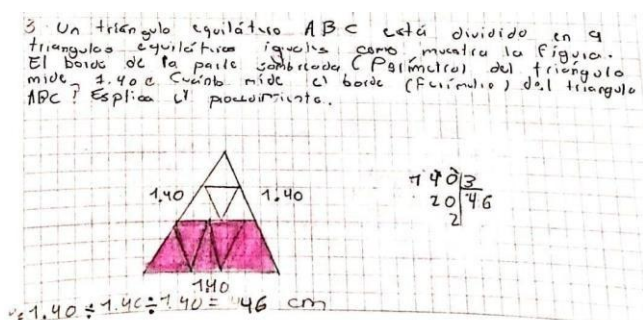 3 Un triángulo equilátero ABC está dividido en 9
triangulos equiláteros iguales como muestra la figura.
El borde de la parte sombreada (Perímetro) del triángulo
mide 1.40 c Cuánto mide el borde (Perímetro) del triangulo
ABC? Esplica el procedimiento.
1.40 1.40
140 3
20 46
2
1.40
1.40 ÷ 1.40 ÷ 1.40 = 46 cm